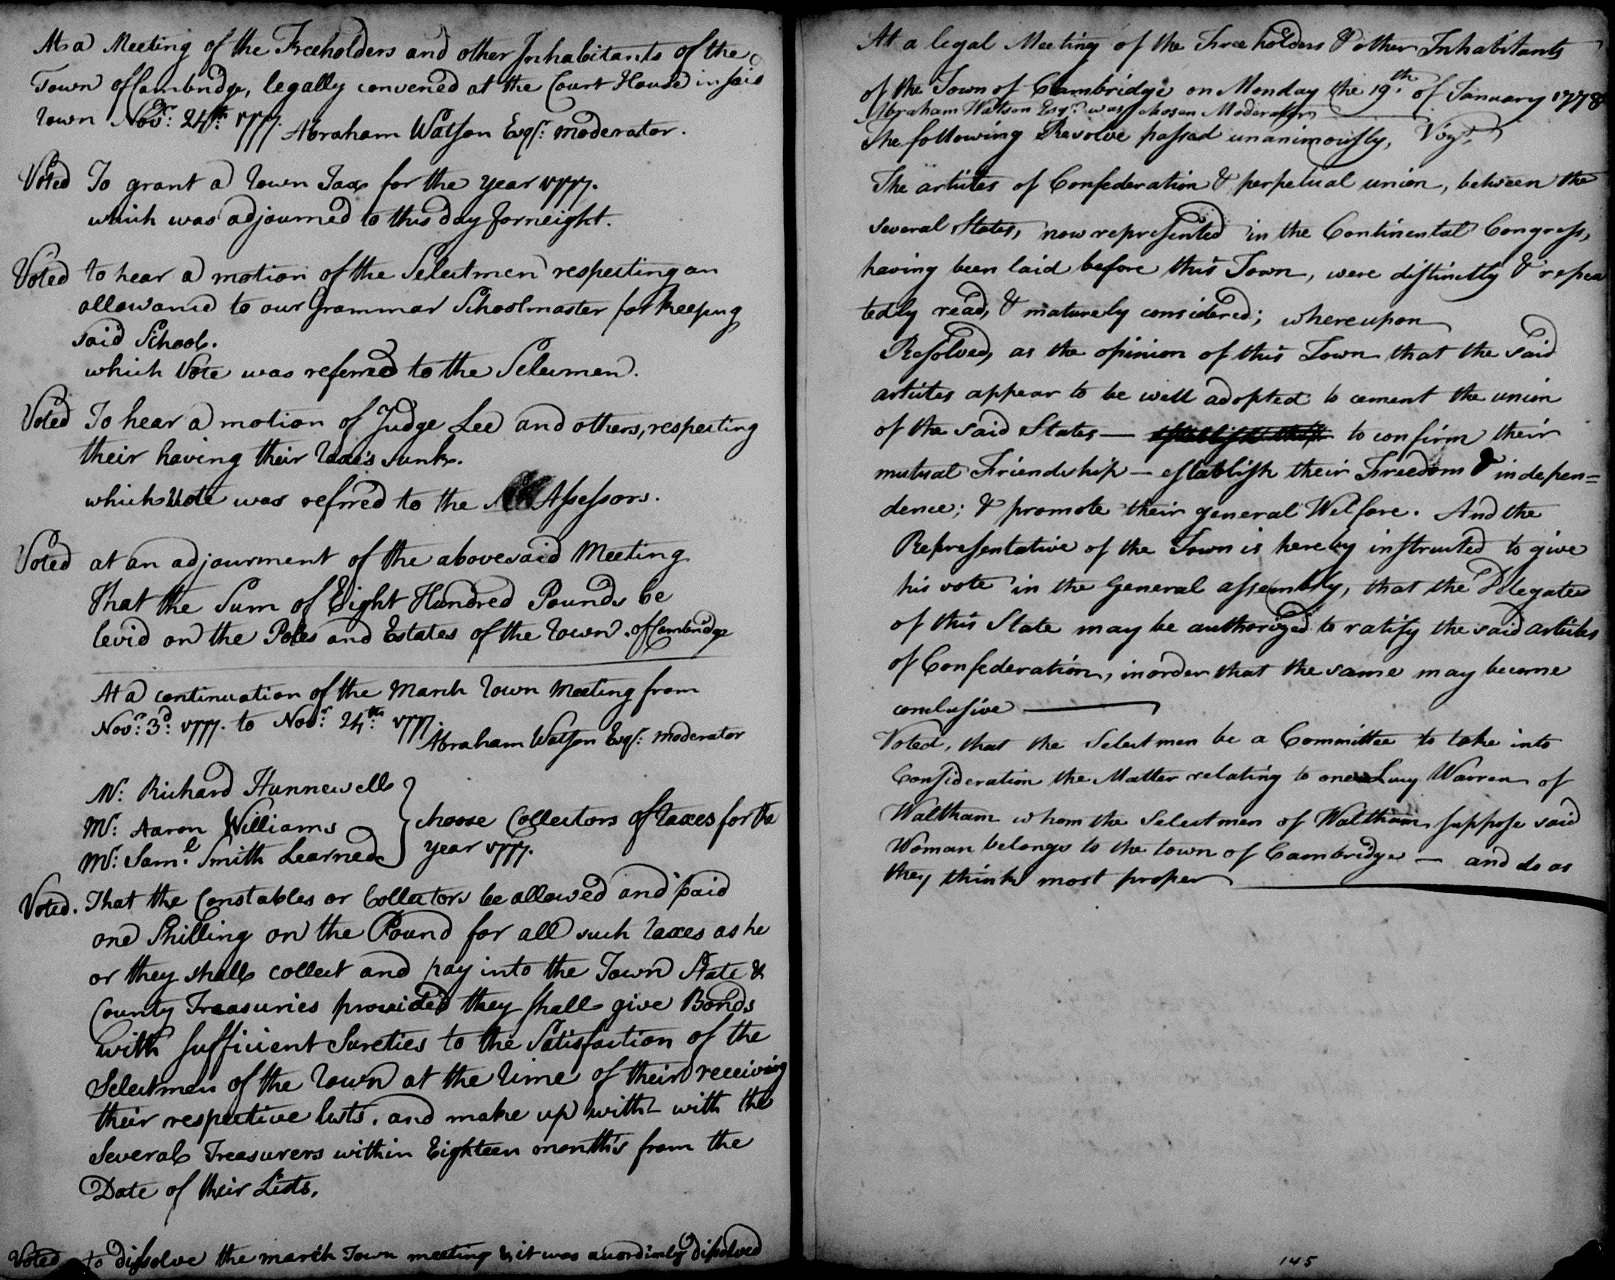 At a Meeting of the Freeholders and other Inhabitants of the
Town of Cambridge, legally convened at the Court House in said
Town Novr. 24th. 1777. Abraham Watson Esqr. moderator.
Voted To grant a Town Tax for the year 1777.
which was adjourned to this day forneight.
Voted to hear a motion of the Selectmen respecting an
allowance to our Grammar Schoolmaster for keeping
said School.
which Vote was referred to the Selecmen.
Voted To hear a motion of Judge Lee and others, respecting
their having their Taxes sunk.
which Vote was referred to the Assessors.
Voted at an adjournment of the abovesaid Meeting
That the Sum of Eight Hundred Pounds be
levid on the Poles and Estates of the Town of Cambridge
At a continuation of the March Town Meeting from
Novr. 3d. 1777. to Novr. 24th. 1777.
Abraham Watson Esqr. moderator
Mr. Richard Hunnewell
Mr. Aaron Williams
Mr. Saml. Smith Learned
choose Collectors of Taxes for the
year 1777.
Voted. That the Constables or Collectors be allowed and paid
one Shilling on the Pound for all such Taxes as he
or they shall collect and pay into the Town State &
County Treasuries provided they shall give Bonds
with sufficient Sureties to the Satisfaction of the
Selectmen of the Town at the time of their receiving
their respective lists. and make up with with the
Several Treasurers within Eighteen months from the
Date of their Lists.
Voted to dissolve the march Town meeting & it was acordingly dissolved
At a legal Meeting of the Freeholders & other Inhabitants
of the Town of Cambridge on Monday the 19th. of January 1778
Abraham Watson Esqr. was chosen Moderator
The following Resolve passed unanimously, Vizt.
The articles of Confederation & perpetual union, between the
several States, now represented in the Continental Congress,
having been laid before this Town, were distinctly & repea
tedly read, & maturely considered; whereupon
Resolved, as the opinion of this Town that the said
articles appear to be well adopted to cement the union
of the said States — to confirm their
mutual Friendship — establish their Freedom & indepen=
dence; & promote their general Welfare. And the
Representative of the Town is hereby instructed to give
his vote in the General assembly, that the Delegates
of this State may be authorized to ratify the said articles
of Confederation, in order that the same may become
conclusive
Voted, that the Selectmen be a Committee to take into
Consideration the Matter relating to one Lucy Warren of
Waltham whom the Selectmen of Waltham suppose said
Woman belongs to the town of Cambridge — and do as
they think most proper
145